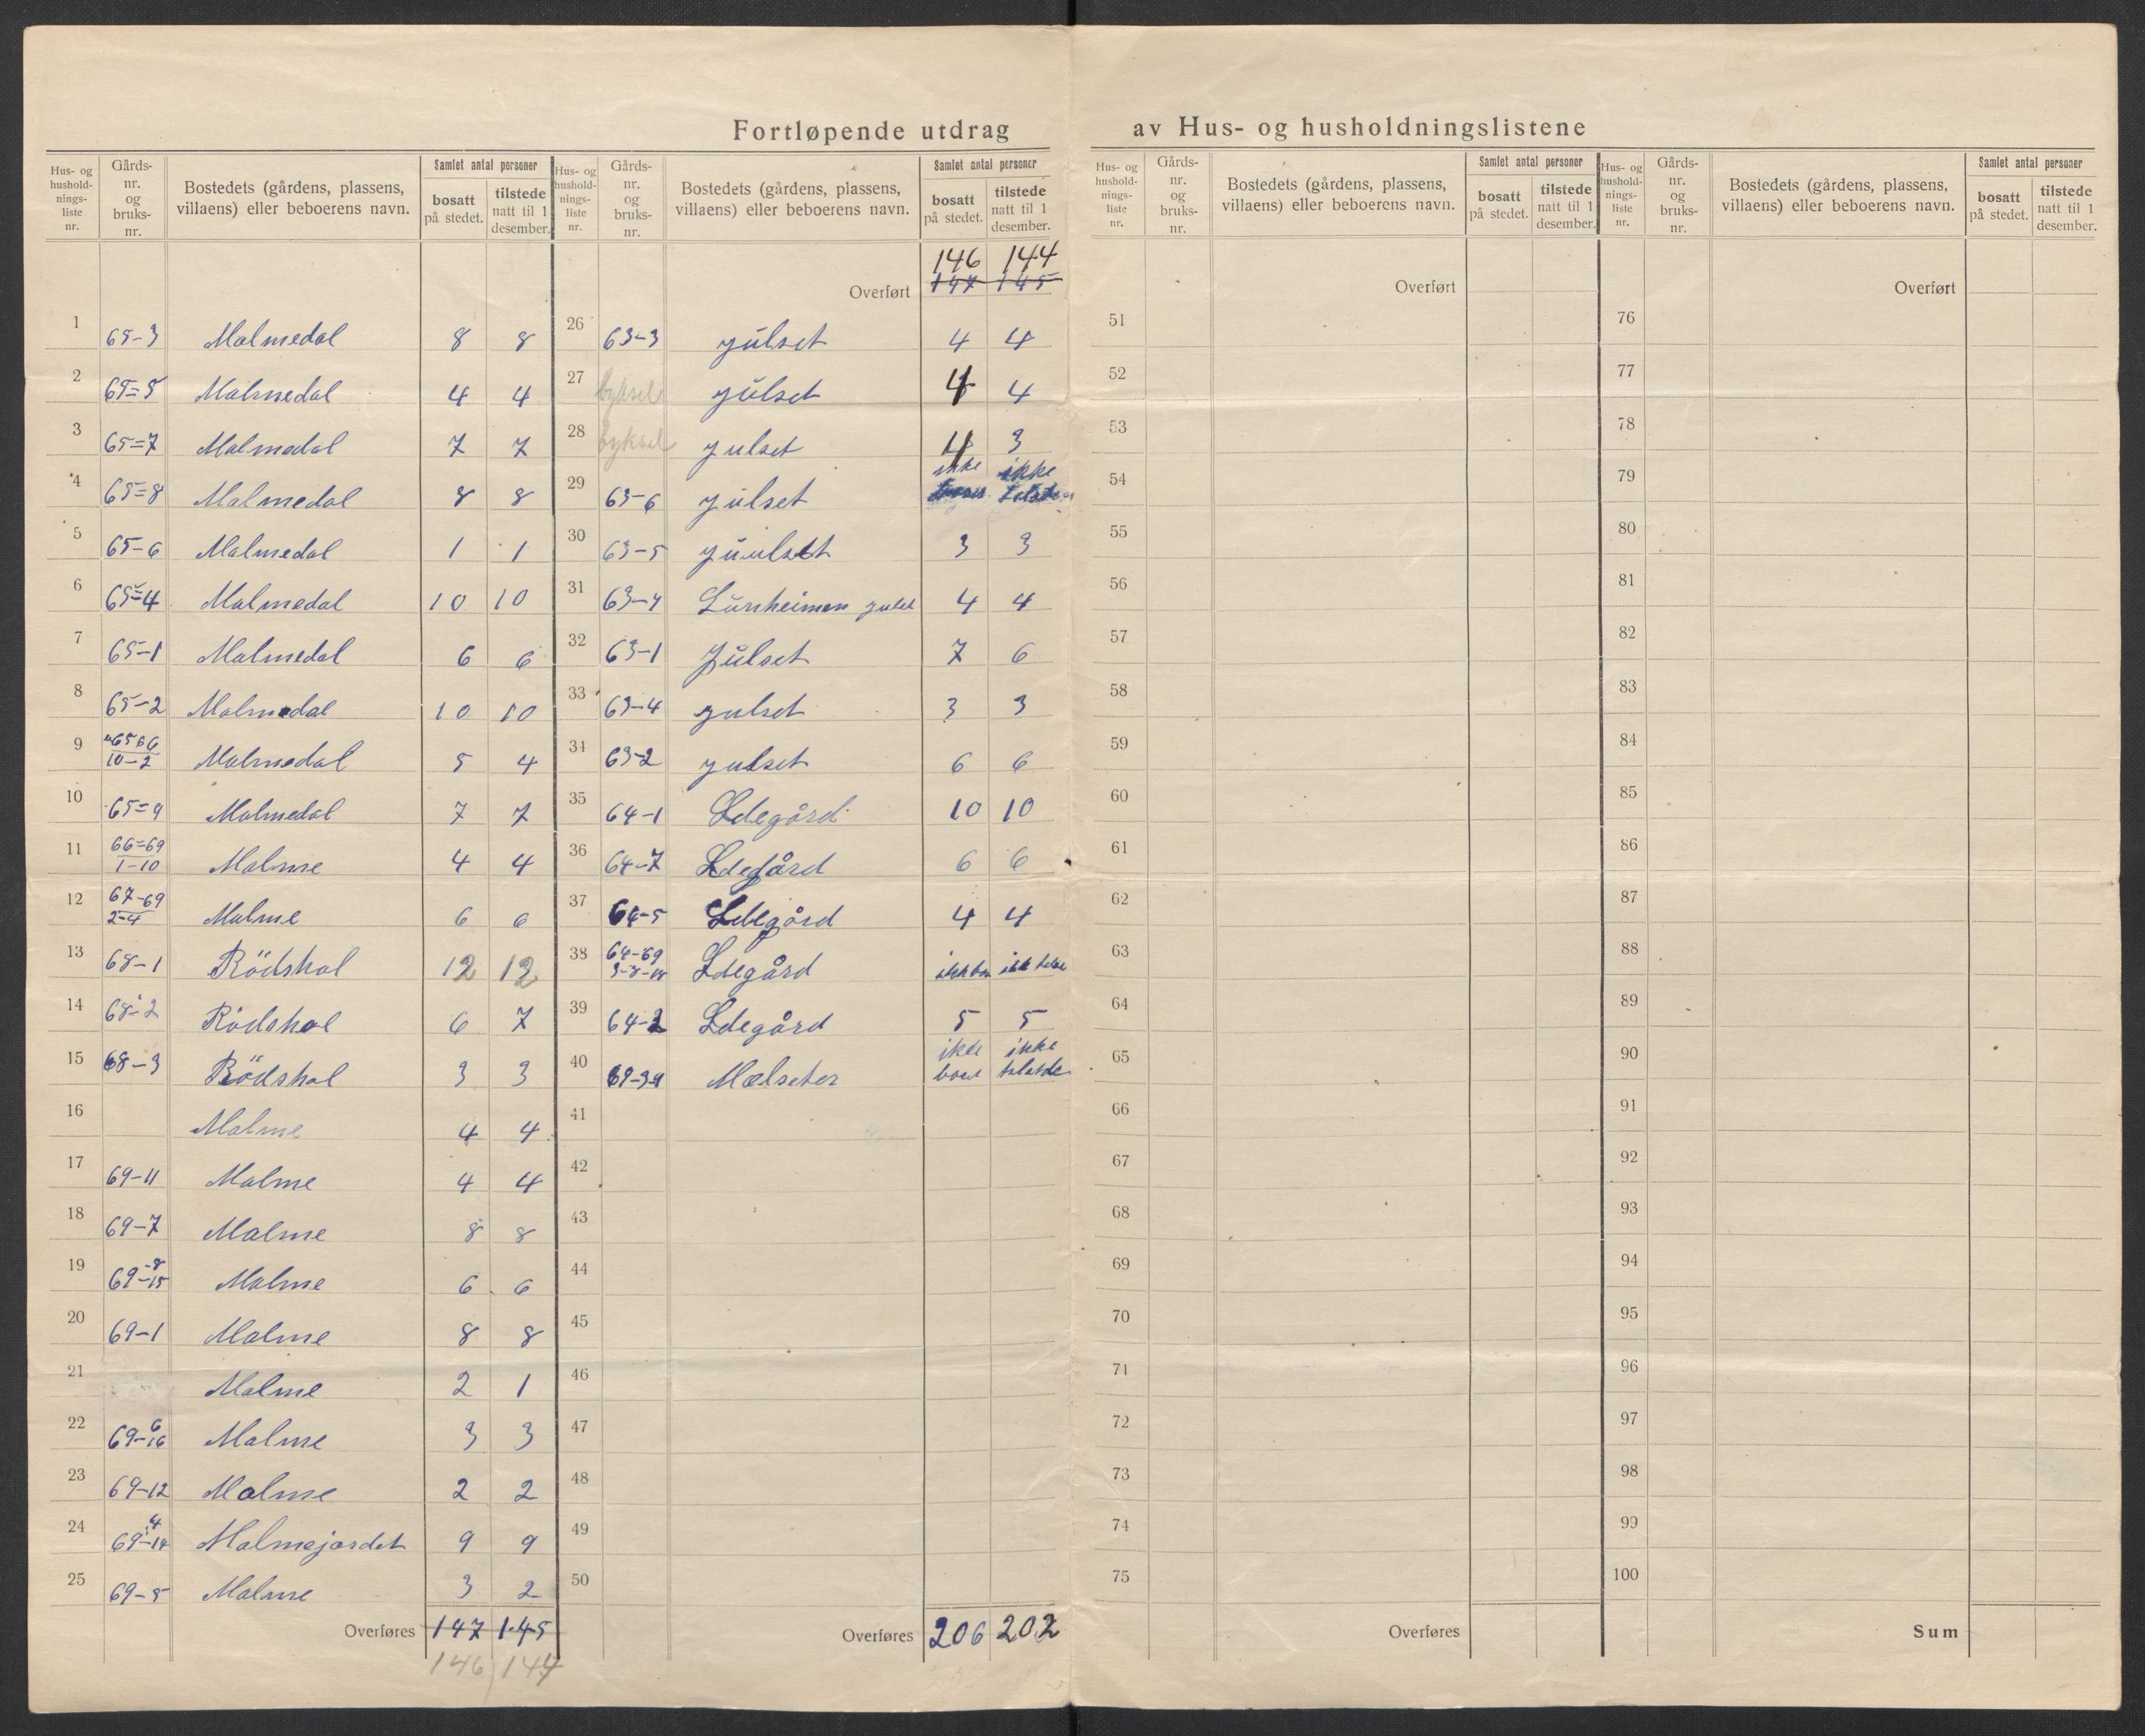 Fortløpende utdrag av Hus- og husholdningslistene
Hus- og hushold-nings-liste nr. Gårds-nr. og bruks-nr. Bostedets (gårdens, plassens, villaens) eller beboerens navn. Samlet antal personer bosatt på stedet. tilstede natt til 1 desember.
Hus- og hushold-nings-liste nr. Gårds-nr. og bruks-nr. Bostedets (gårdens, plassens, villaens) eller beboerens navn. Samlet antal personer bosatt på stedet. tilstede natt til 1 desember.
1 65-3 Malmedal 8 8
2 65=5 Malmedal 4 4
3 65=7 Malmedal 7 7
4 65=8 Malmedal 8 8
5 65-6 Malmedal 1 1
6 65=4 Malmedal 10 10
7 65-1 Malmedal 6 6
8 65-2 Malmedal 10 10
9 65 66 10-2 Malmedal 5 4
10 65=9 Malmedal 7 7
11 66=69 1-10 Malme 4 4
12 67-69 2-4 Malme 6 6
13 68-1 Rödshol 12 12
14 68-2 Rödshol 6 7
15 68-3 Rödshol 3 3
16 Malme 4 4
17 69-11 Malme 4 4
18 69-7 Malme 8 8
19 69-8-15 Malme 6 6
20 69-1 Malme 8 8
21 Malme 2 1
22 69-6 16 Malme 3 3
23 69-12 Malme 2 2
24 69-4 14 Malmejordet 9 9
25 69-5 Malme 3 2
Overføres 147 145
146 144
146 144
Overført 147 145
26 63-3 Julset 4 4
27 byksel Julset 4 4
28 byksel Julset 4 3
29 63-6 Julset ikke ikke
30 63-5 Juulset 3 3
31 63-7 Lunheimen Julset 4 4
32 63-1 Julset 7 6
33 63-4 Julset 3 3
34 63-2 Julset 6 6
35 64-1 Ldegård 10 10
36 64-7 Ldegård 6 6
37 64-5 Ldegård 4 4
38 64-69 3-8-18 Ldegård
39 64-2 Ldegård 5 5
40 69-39 Mælseter ikke ikke
41
42
43
44
45
46
47
48
49
50
Overføres 206 202
Hus- og hushold-nings-liste nr. Gårds-nr. og bruks-nr. Bostedets (gårdens, plassens, villaens) eller beboerens navn. Samlet antal personer bosatt på stedet. tilstede natt til 1 desember.
Hus- og hushold-nings-liste nr. Gårds-nr. og bruks-nr. Bostedets (gårdens, plassens, villaens) eller beboerens navn. Samlet antal personer bosatt på stedet. tilstede natt til 1 desember.
Overført
51
52
53
54
55
56
57
58
59
60
61
62
63
64
65
66
67
68
69
70
71
72
73
74
75
Overføres
Overført
76
77
78
79
80
81
82
83
84
85
86
87
88
89
90
91
92
93
94
95
96
97
98
99
100
Sum